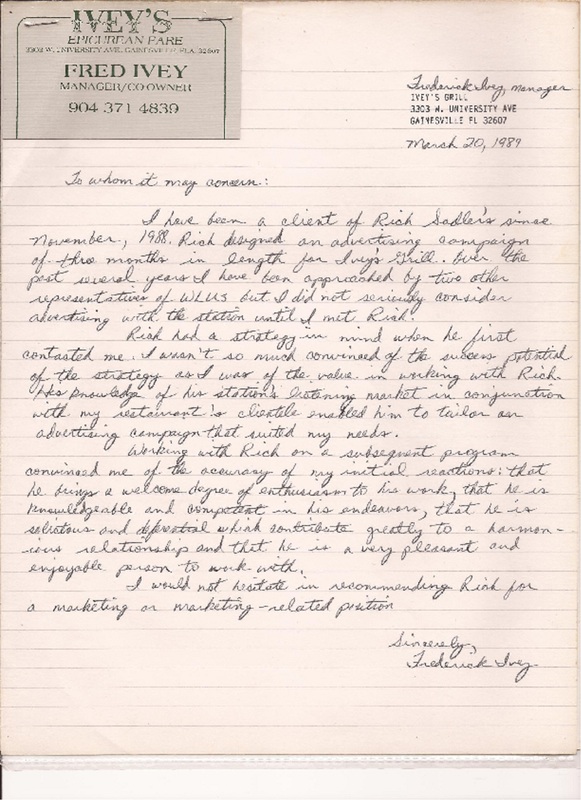 IVEY'S
EPICUREAN FARE
3303 W. UNIVERSITY AVE. GAINESVILLE, FLA. 32607
FRED IVEY
MANAGER/CO OWNER
904 371 4839
Frederick Ivey, manager
IVEY'S GRILL
3303 W. UNIVERSITY AVE
GAINESVILLE FL 32607
March 20, 1989
To whom it may concern:
I have been a client of Rich Sadler's since
November, 1988. Rich designed an advertising campaign
of three months in length for Ivey's Grill. Over the
past several years I have been approached by two other
representatives of WLUS but I did not seriously consider
advertising with the station until I met Rich.
Rich had a strategy in mind when he first
contacted me. I wasn't so much convinced of the success potential
of the strategy as I was of the value in working with Rich.
His knowledge of his station's listening market in conjunction
with my restaurant's clientele enabled him to tailor an
advertising campaign that suited my needs.
Working with Rich on a subsequent program
convinced me of the accuracy of my initial reactions: that
he brings a welcome degree of enthusiasm to his work, that he is
knowledgeable and competent in his endeavors, that he is
solicitous and deferential which contribute greatly to a harmon-
ious relationship and that he is a very pleasant and
enjoyable person to work with.
I would not hesitate in recommending Rich for
a marketing or marketing-related position
Sincerely,
Frederick Ivey